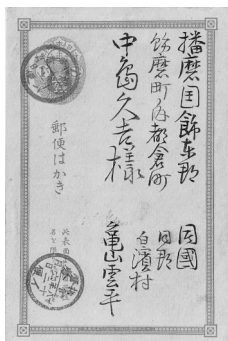 播磨国飾東郡
飾磨町ノ内都倉町
中島久吉様
同國
同郡
白濱村
亀山雲平
郵便はかき